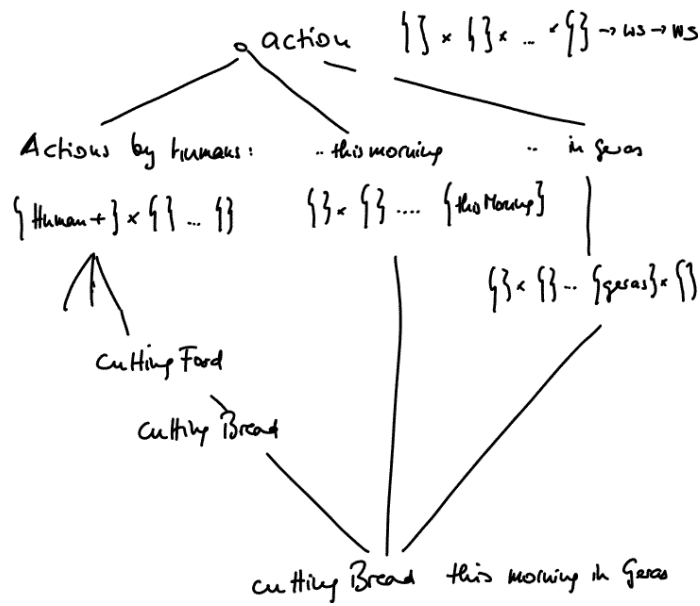 action {} × {} × ... × {} → WS → WS
Actions by humans: .. this morning .. in geras
{Human+} × {} ... {} {} × {} .... {this Morning}
{} × {} ... {geras} × {}
cutting Food
cutting Bread
cutting Bread this morning in Geras